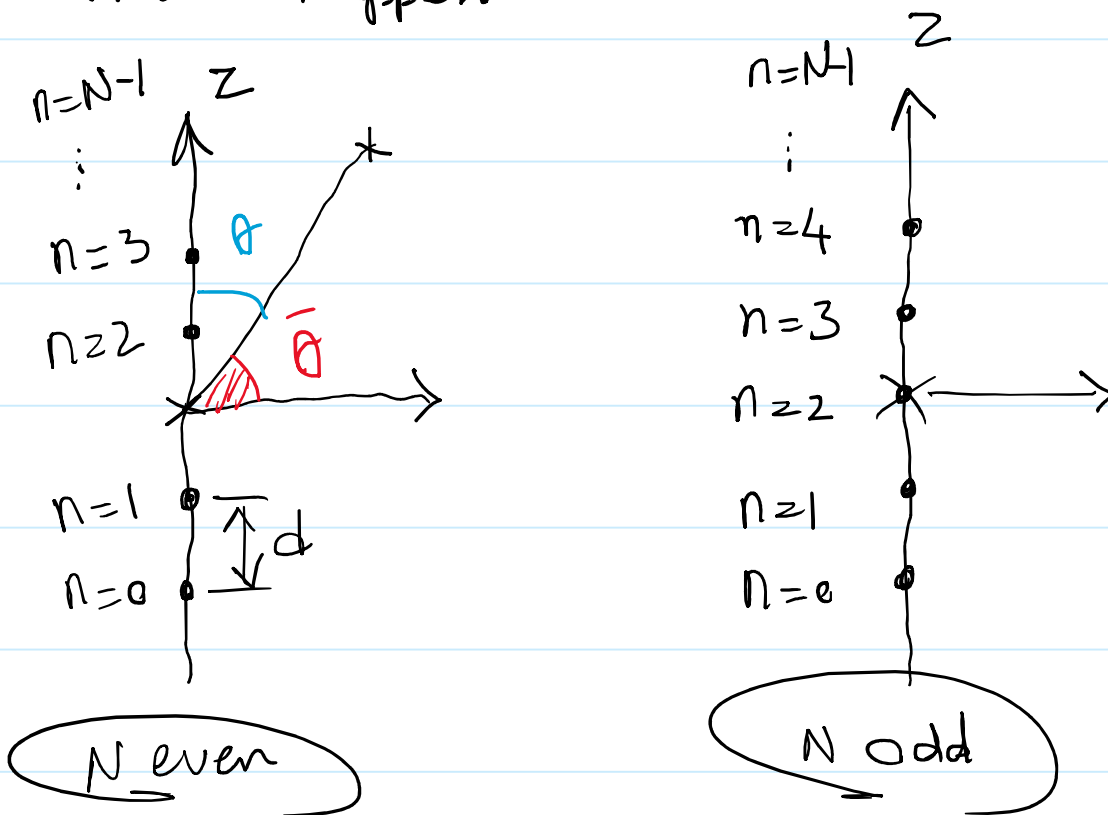 n=N-1 Z
⋮
θ
n=3
n=2
θ̄
n=1
d
n=0
N even
Z
n=N-1
⋮
n=4
n=3
n=2
n=1
n=0
N odd